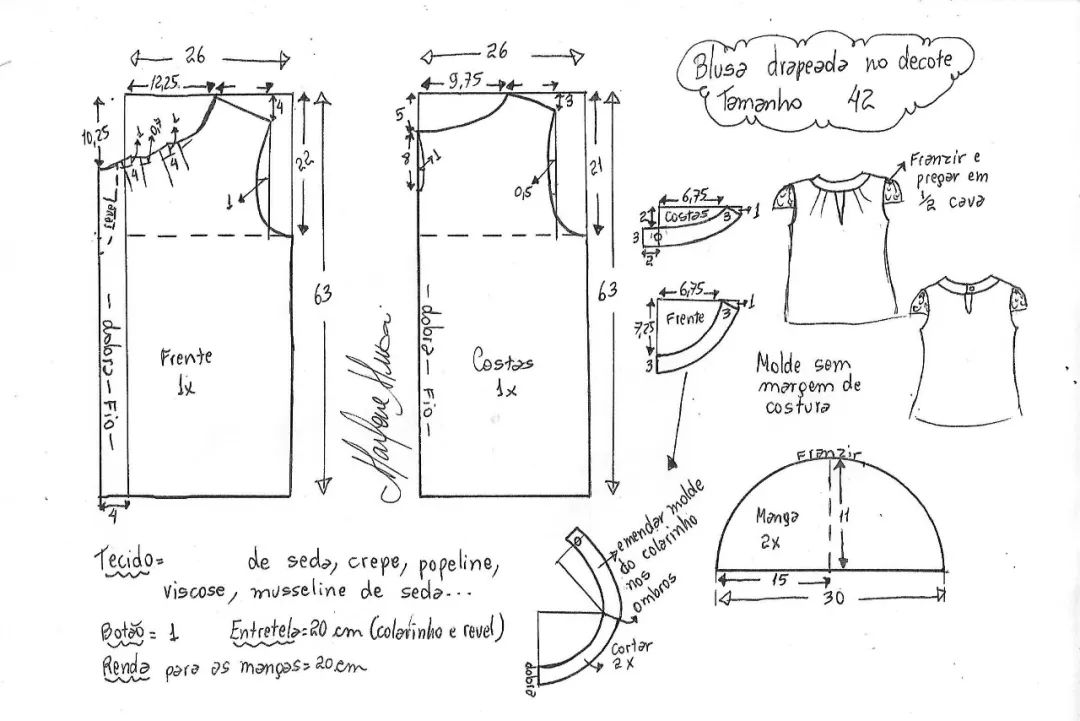 Blusa drapeada no decote
Tamanho 42
26
12,25
10,25
1
0,7
1
4
4
4
1
22
63
dobra - Fio -
Frente
1x
4
26
9,75
5
8
1
3
0,5
21
63
- dobra - Fio -
Costas
1x
Marlene Mukai
6,75
2
Costas
3
1
3
2
6,75
7,25
Frente
3
1
3
Franzir e
pregar em
1/2 cava
Molde sem
margem de
costura
emendar molde
do colarinho
nos
ombros
Cortar
2x
dobra
Franzir
Manga
2x
11
15
30
Tecido= de seda, crepe, popeline,
viscose, musseline de seda...
Botão = 1 Entretela=20 cm (colarinho e revel)
Renda para as mangas=20cm